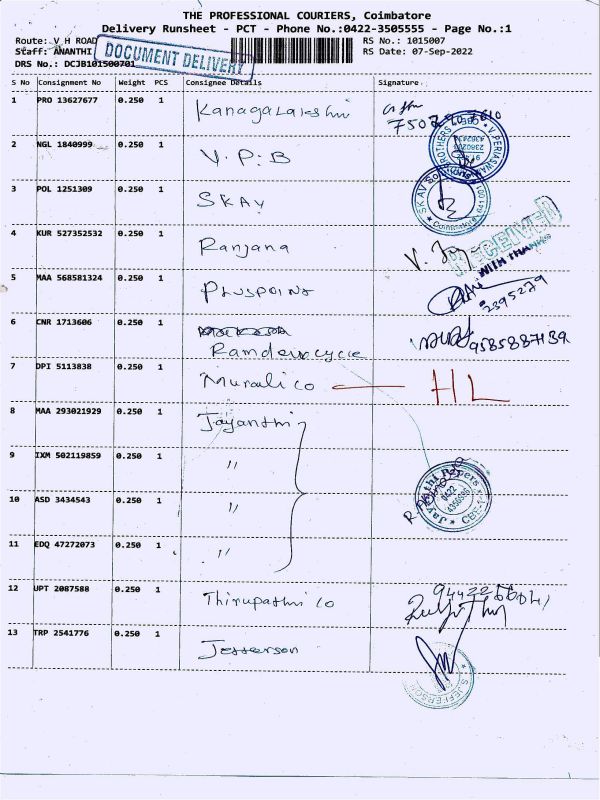 THE PROFESSIONAL COURIERS, Coimbatore
Delivery Runsheet - PCT - Phone No.:0422-3505555 - Page No.:1
Route: V H ROAD RS No.: 1015007
Staff: ANANTHI RS Date: 07-Sep-2022
DOCUMENT DELIVERY
DRS No.: DCJB101500701
S No Consignment No Weight PCS Consignee Details Signature
1 PRO 13627677 0.250 1 Kanagalakshmi
2 NGL 1840999 0.250 1 V.P.B
3 POL 1251309 0.250 1 SKAV
4 KUR 527352532 0.250 1 Ranjana
RECEIVED
WITH THANKS
5 MAA 568581324 0.250 1 PLUSPOINT
2395279
6 CNR 1713606 0.250 1 Ramdevcycle
9585887139
7 DPI 5113838 0.250 1 Murali co HL
8 MAA 293021929 0.250 1 Jayanthi
9 IXM 502119859 0.250 1 "
10 ASD 3434543 0.250 1 "
11 EDQ 47272073 0.250 1 "
12 UPT 2087588 0.250 1 Thirupathi co
13 TRP 2541776 0.250 1 Jefferson
S. JEFFERSON